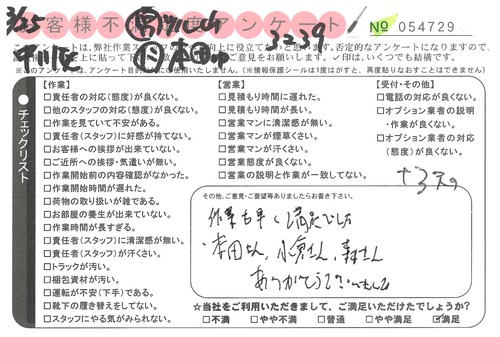 3/25
お客様不満足度アンケート
3239
№ 054729
このアンケートは、弊社作業スタッフの
向上に役立てたいと思います。否定的なアンケートになりますので、
ご意見をお願いします。✓印は、いくつでも結構です。
(※情報保護シールは1度がすと、再度貼りなおすことはできません)
チェックリスト
【作業】
□責任者の対応(態度)が良くない。
□他のスタッフの対応(態度)が良くない。
□作業を見ていて不安がある。
□責任者(スタッフ)に好感が持てない。
□お客様への挨拶が出来ていない。
□ご近所への挨拶・気遣いが無い。
□作業開始前の内容確認がなかった。
□作業開始時間が遅れた。
□荷物の取り扱いが雑である。
□お部屋の養生が出来ていない。
□作業時間が長すぎる。
□責任者(スタッフ)に清潔感が無い。
□責任者(スタッフ)が汗くさい。
□トラックが汚い。
□梱包資材が汚い。
□運転が不安(下手)である。
□靴下の履き替えをしてない。
□スタッフにやる気がみられない。
【営業】
□見積もり時間に遅れた。
□見積もり時間が長い。
□営業マンに清潔感が無い。
□営業マンが煙草くさい。
□営業マンが汗くさい。
□営業態度が良くない。
□営業の説明と作業が一致してない。
【受付・その他】
□電話の対応が良くない。
□オプション業者の説明
・作業が良くない。
□オプション業者の対応
(態度)が良くない。
その他、ご意見・ご要望等ありましたらお書き下さい。
作業も早く満足でした
本田さん、小倉さん、森さん
ありがとうございました
☆当社をご利用いただきまして、ご満足いただけたでしょうか?
□不満 □やや不満 □普通 □やや満足 ☑満足